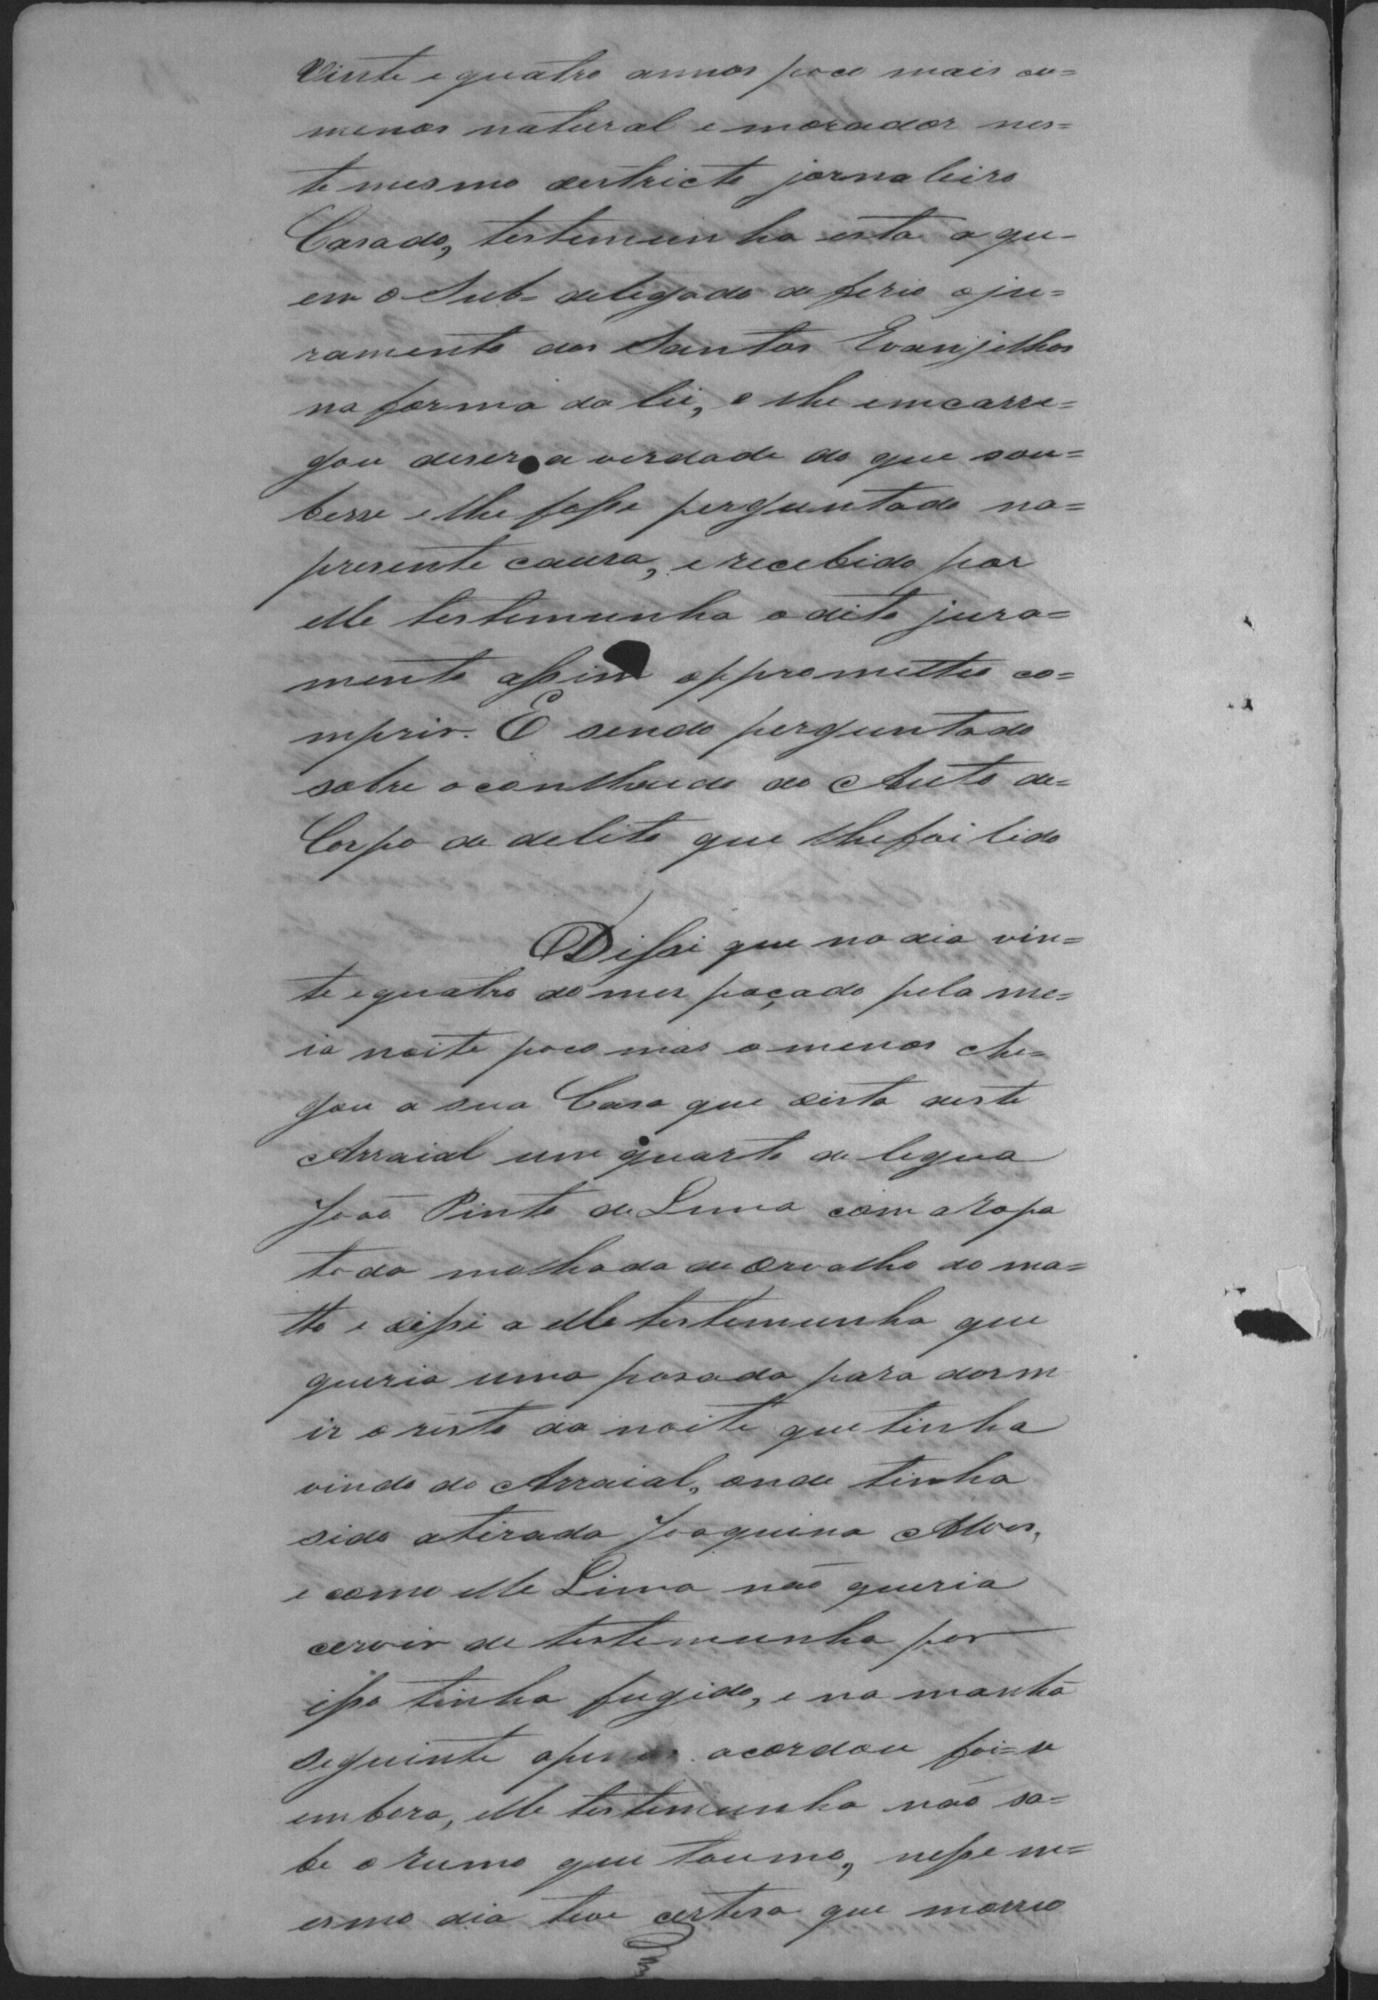 Vinte e quatro annos poco mais ou=
menos natural e morador nes=
te mesmo destricto jornaleiro
Casado, testemunha esta a qu-
em o Sub-delegado deferio o ju=
ramento dos Santos Evanjelhos
na forma da lei, e lhe emcarre=
gou diser a verdade do que sou=
besse e lhe fosse perguntado na=
presente causa, e recebido por
elle testemunha o dito jura=
mento assim o prometteo co=
mprir. E sendo perguntado
sobre o contheudo do Auto de=
Corpo de delito que lhe foi lido
Disse que no dia vin=
te e quatro do mes paçado pela me=
ia noite poco mas o menos che=
gou a sua Casa que dista deste
Arraial um quarto de legua
João Pinto de Lima com a ropa
toda molhada de orvalho do ma=
tto e disse a elle testemunha que
queria uma posada para dorm
ir o resto da noite que tinha
vindo do Arraial, onde tinha
sido atirada Joaquina Alves,
e como elle Lima não queria
cervir de testemunha por
isso tinha fugido, e na manhã
seguinte apenas acordou foi-se
embora, elle testemunha não sa=
be o rumo que toumo, nesse me=
esmo dia teve certesa que morreo